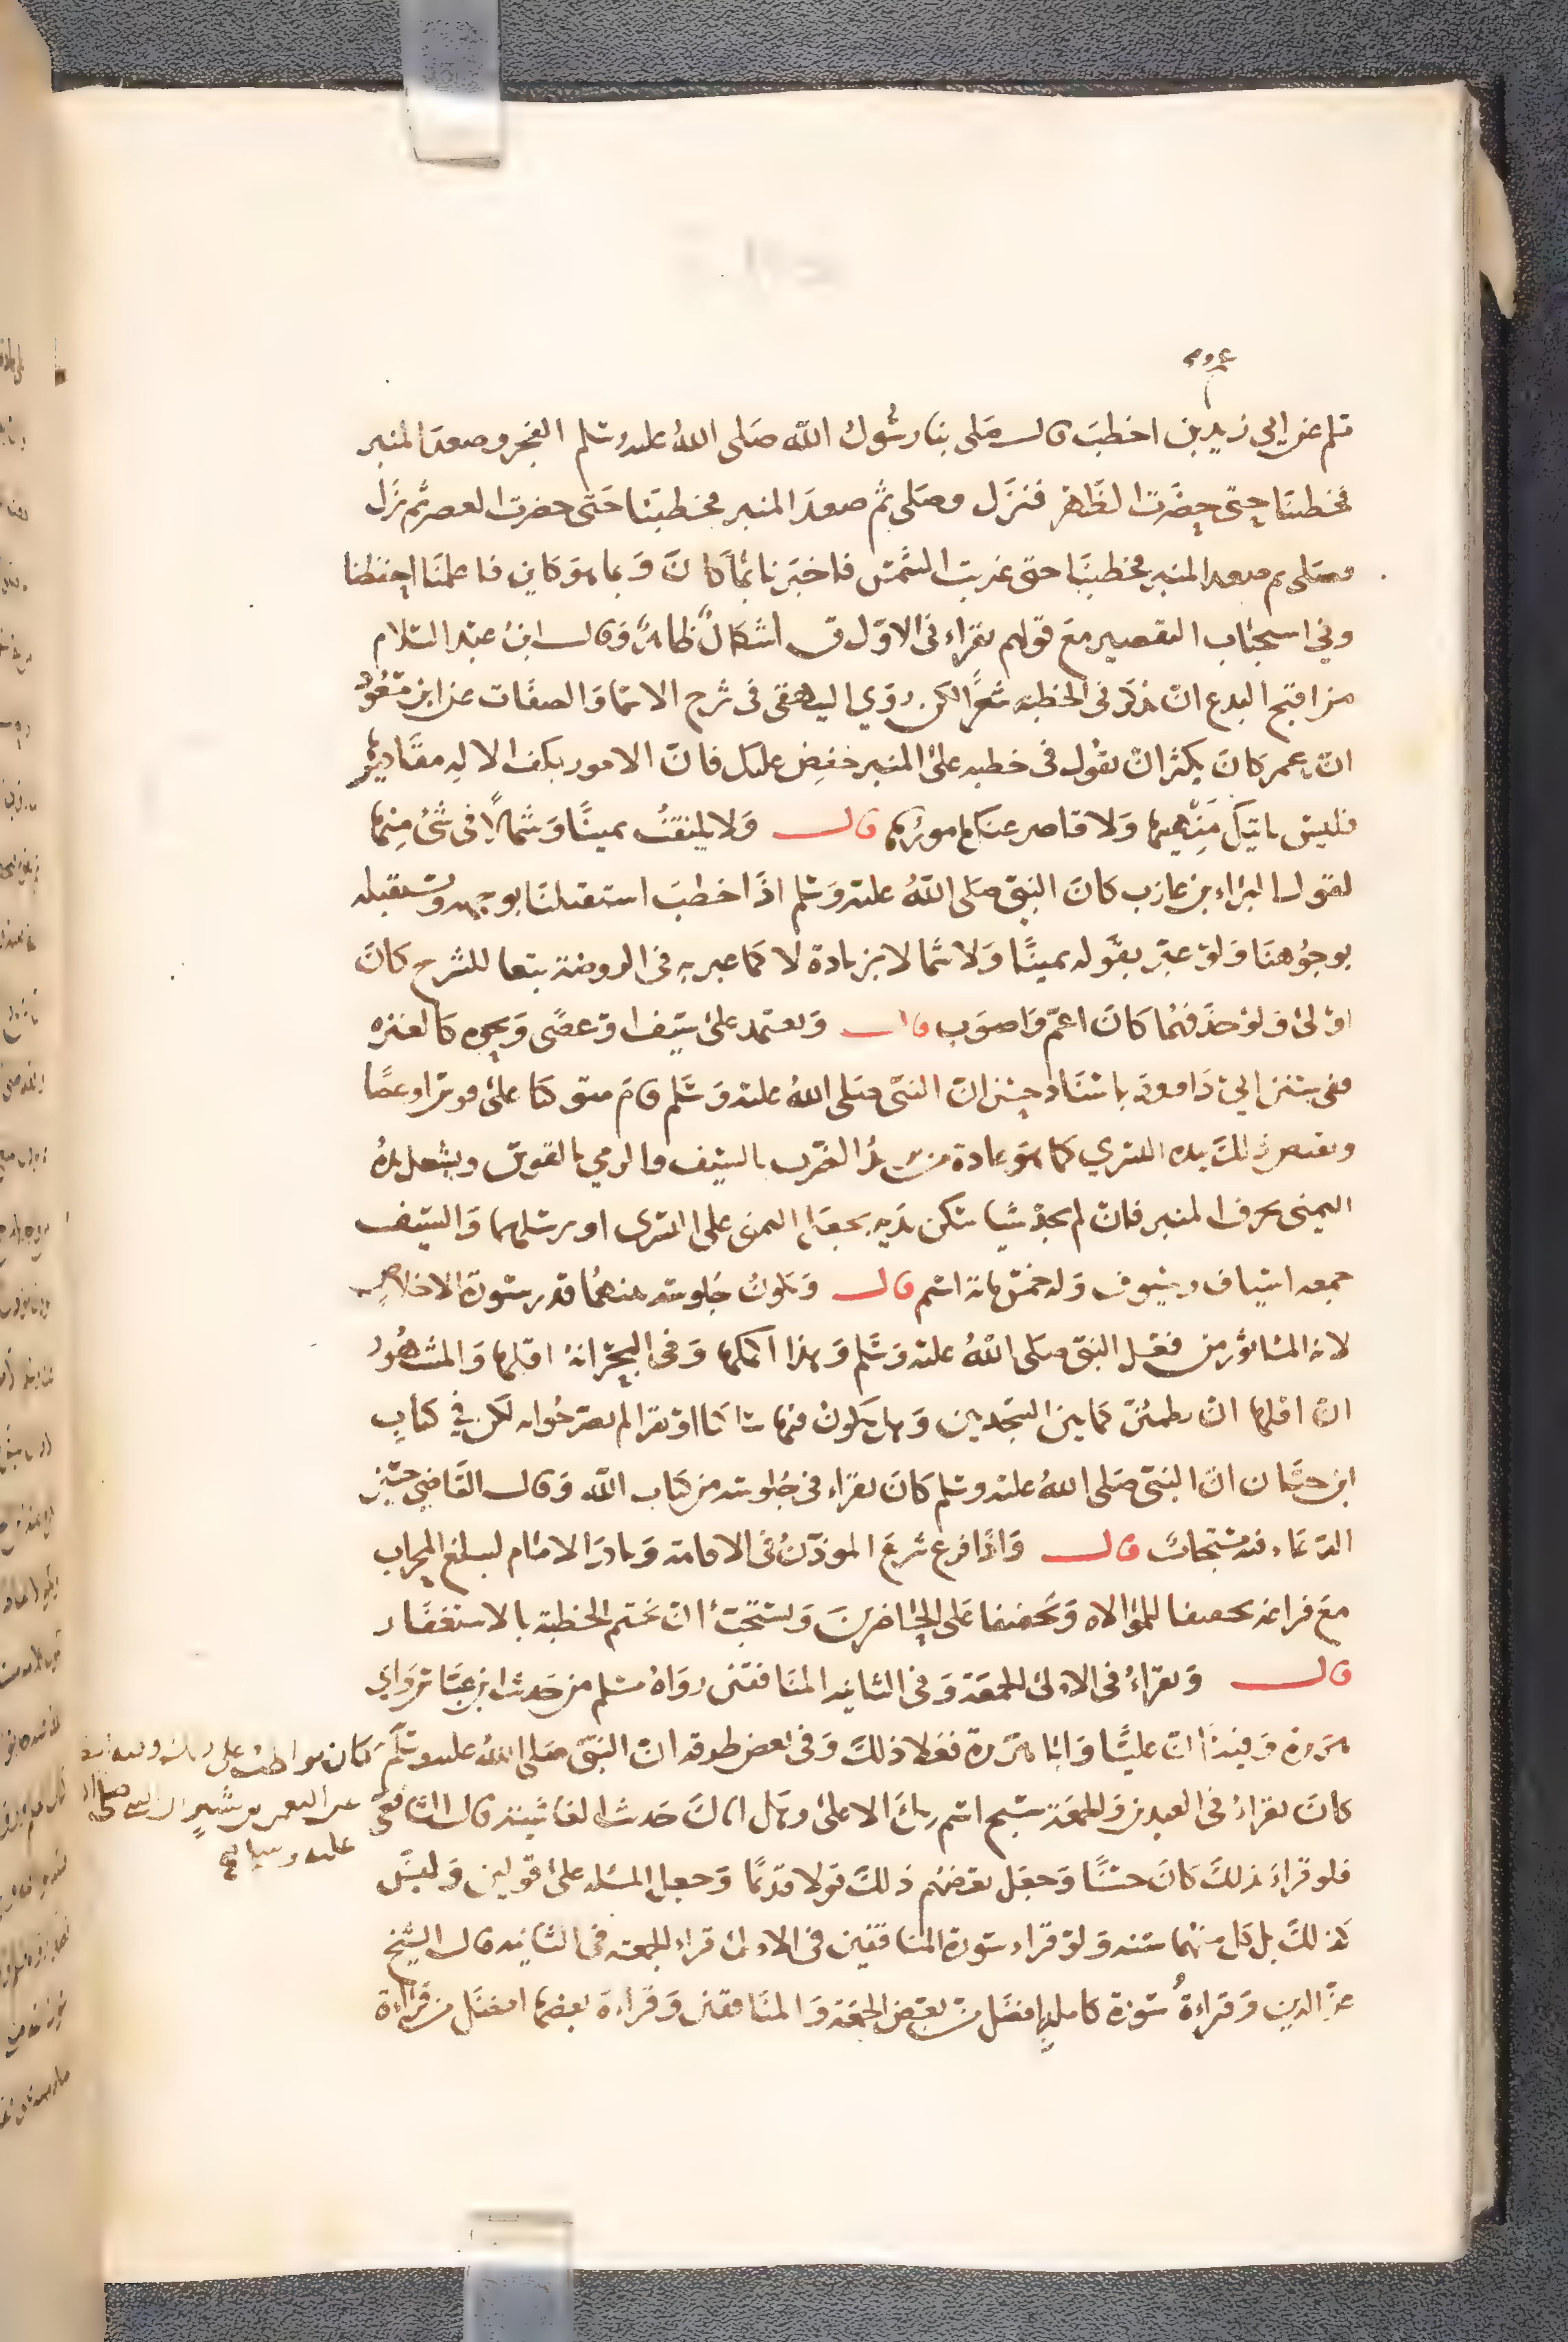 عمرو
مسلم عن ابي زيد بن اخطب قال صلى بنا رسول الله صلى الله عليه وسلم الفجر وصعد المنبر
فخطبنا حتى حضرت الظهر فنزل وصلى ثم صعد المنبر فخطبنا حتى حضرت العصر ثم نزل
فصلى ثم صعد المنبر فخطبنا حتى غربت الشمس فاخبرنا بما كان وبما هو كاين فاعلمنا احفظنا
وفي استحباب التقصير مع قولهم يقراء في الاولى ق اشكال ظاهر وقال ابن عبد السلام
من اقبح البدع ان يذكر في الخطبة شعرا لكن روي البيهقي في شرح الاسما والصفات عن ابن مسعود
ان عمر كان يكثر ان يقول في خطبته على المنبر خفض عليك فان الامور بكف الاله مقاديرها
فليس ياتيك منهيها ولا قاصر عنك مامورها قال ولا يلتفت يمينا وشمالا في شئ منها
لقول البراء بن عازب كان النبي صلى الله عليه وسلم اذا خطب استقبلنا بوجهه ونستقبله
بوجوهنا ولو عبر بقوله يمينا ولا شمالا بزيادة لا كما عبر به في الروضة تبعا للشرح كان
اولى ولو حذفهما كان اعم واصوب قال ويعتمد على سيف او عصى ونحوه كالعنزه
ففي سنن ابي داوود باسناد حسن ان النبي صلى الله عليه وسلم قام متوكئا على قوس او عصا
ويقبض ذلك بيده اليسري كما هو عادة من يريد الضرب بالسيف والرمي بالقوس ويشغل يده
اليمنى بحرف المنبر فان لم يجد شيا سكن يديه بجعل اليمنى على اليسرى او يرسلهما والسيف
جمعه اسياف وسيوف وله خمس ماية اسم قال ويكون جلوسه بينهما قدر سورة الاخلاص
لانه الماثور من فعل النبي صلى الله عليه وسلم وهذا اكملها وفي البحر انه اقلها والمشهور
ان اقلها ان يطمئن كما بين السجدتين وهل يكون فيها ساكتا او يقرا لم يصرحوا به لكن في كتاب
ابن حبان ان النبي صلى الله عليه وسلم كان يقراء في جلوسه من كتاب الله وقال القاضي حسين
الدعاء فيه مستجاب قال واذا فرغ شرع الموذن في الاقامة وبادر الامام ليبلغ المحراب
مع فراغه تحقيقا للموالاه وتخفيفا على الحاضرين ويستحب ان يختم الخطبة بالاستغفار
قال ويقراء في الاولى الجمعة وفي الثانيه المنافقين رواه مسلم من حديث ابن عباس وابي
هريرة وفيه ان عليا وابا هريرة فعلا ذلك وفي بعض طرقه ان النبي صلى الله عليه وسلم كان يواظب على
كان يقراء في العيدين والجمعة سبح اسم ربك الاعلى وهل اتاك حديث الغاشيه قال الشافعي
عن النعمن بن بشير ان النبي صلى الله
عليه وسلم
فلو قراء ذلك كان حسنا وجعل بعضهم ذلك قولا قديما وجعل المسئله على قولين وليس
كذلك بل كل منهما سنه ولو قراء سورة المنافقين في الاولى قراء الجمعه في الثانيه قال الشيخ
عز الدين وقراءة سورة كاملة افضل من بعض الجمعة والمنافقين وقراءة بعضها افضل من قراءة